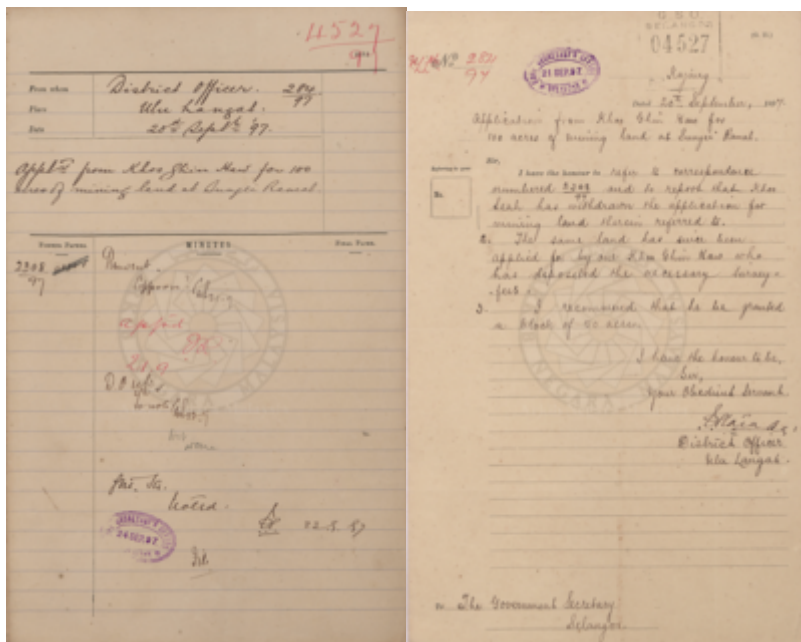 4527
97
From whom
District Officer.
204
97
Place
Ulu Langat.
Date
20th Septbr '97.
from Khoo Ghin Haw for 100
acres of mining land at Sungei Ramal.
MINUTES
2308
97
D.O.
to notify
Noted.
SECRETARY'S OFFICE
24 SEP. 97
SELANGOR
04527
No 204
97
SECRETARY'S OFFICE
21 SEP. 97
Kajang
20th September, 1897.
Application from Khoo Ghin Haw for
100 acres of mining land at Sungei Ramal.
Sir,
I have the honour to refer to correspondence
numbered 2308 and to report that Khoo
Seah has withdrawn the application for
mining land therein referred to.
2. The same land has since been
applied for by one Khoo Ghin Haw who
has deposited the necessary survey
fees.
3. I recommend that he be granted
a block of 50 acres.
I have the honour to be,
Sir,
Your Obedient Servant.
District Officer
Ulu Langat.
The Government Secretary
Selangor.